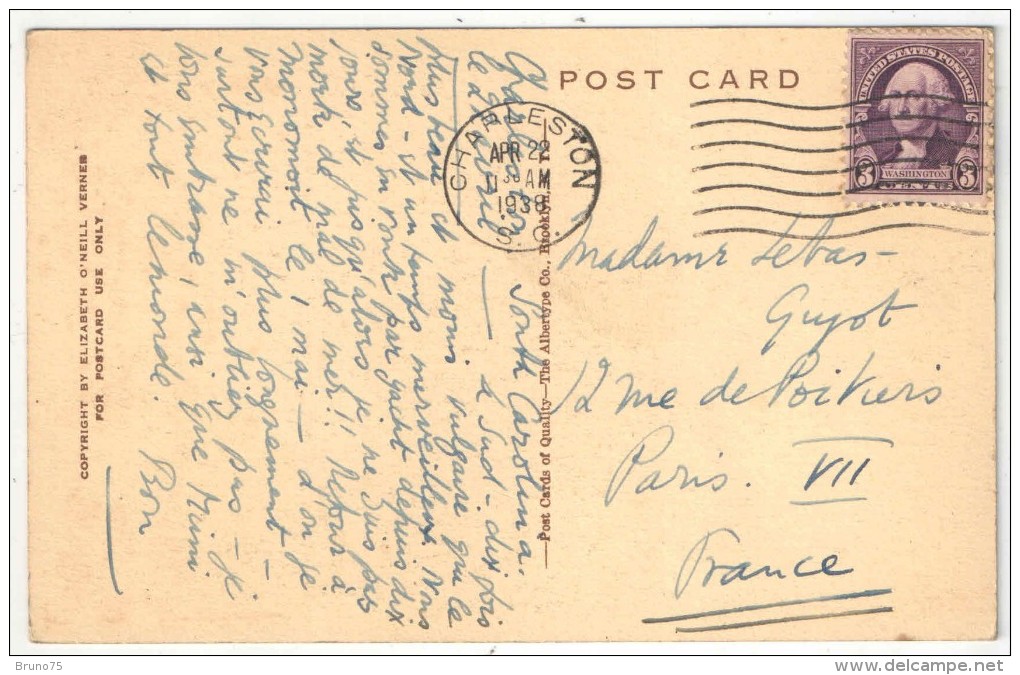 POST CARD
UNITED STATES POSTAGE
3 WASHINGTON 3
CHARLESTON
APR 22
11 30 AM
1938
S.
Madame Lebas-
Guyot
12 rue de Poitiers
Paris. VII
France
Charleston South Carolina.
le 21 avril — le Sud - dix fois
plus beau et moins vulgaire que le
Nord - et un temps merveilleux. Nous
sommes en route par yacht depuis dix
jours, et jusqu'alors je ne suis pas
morte de mal de mer!! Retour à
le 1 mai - d'où je
vous écrirai plus longuement -
surtout ne m'oubliez pas - je
vous embrasse, ainsi que Mimi
et tout le monde. Bon
—Post Cards of Quality—The Albertype Co., Brooklyn, N. Y.—
COPYRIGHT BY ELIZABETH O'NEILL VERNER
FOR POSTCARD USE ONLY
Bruno75
delcampe.net